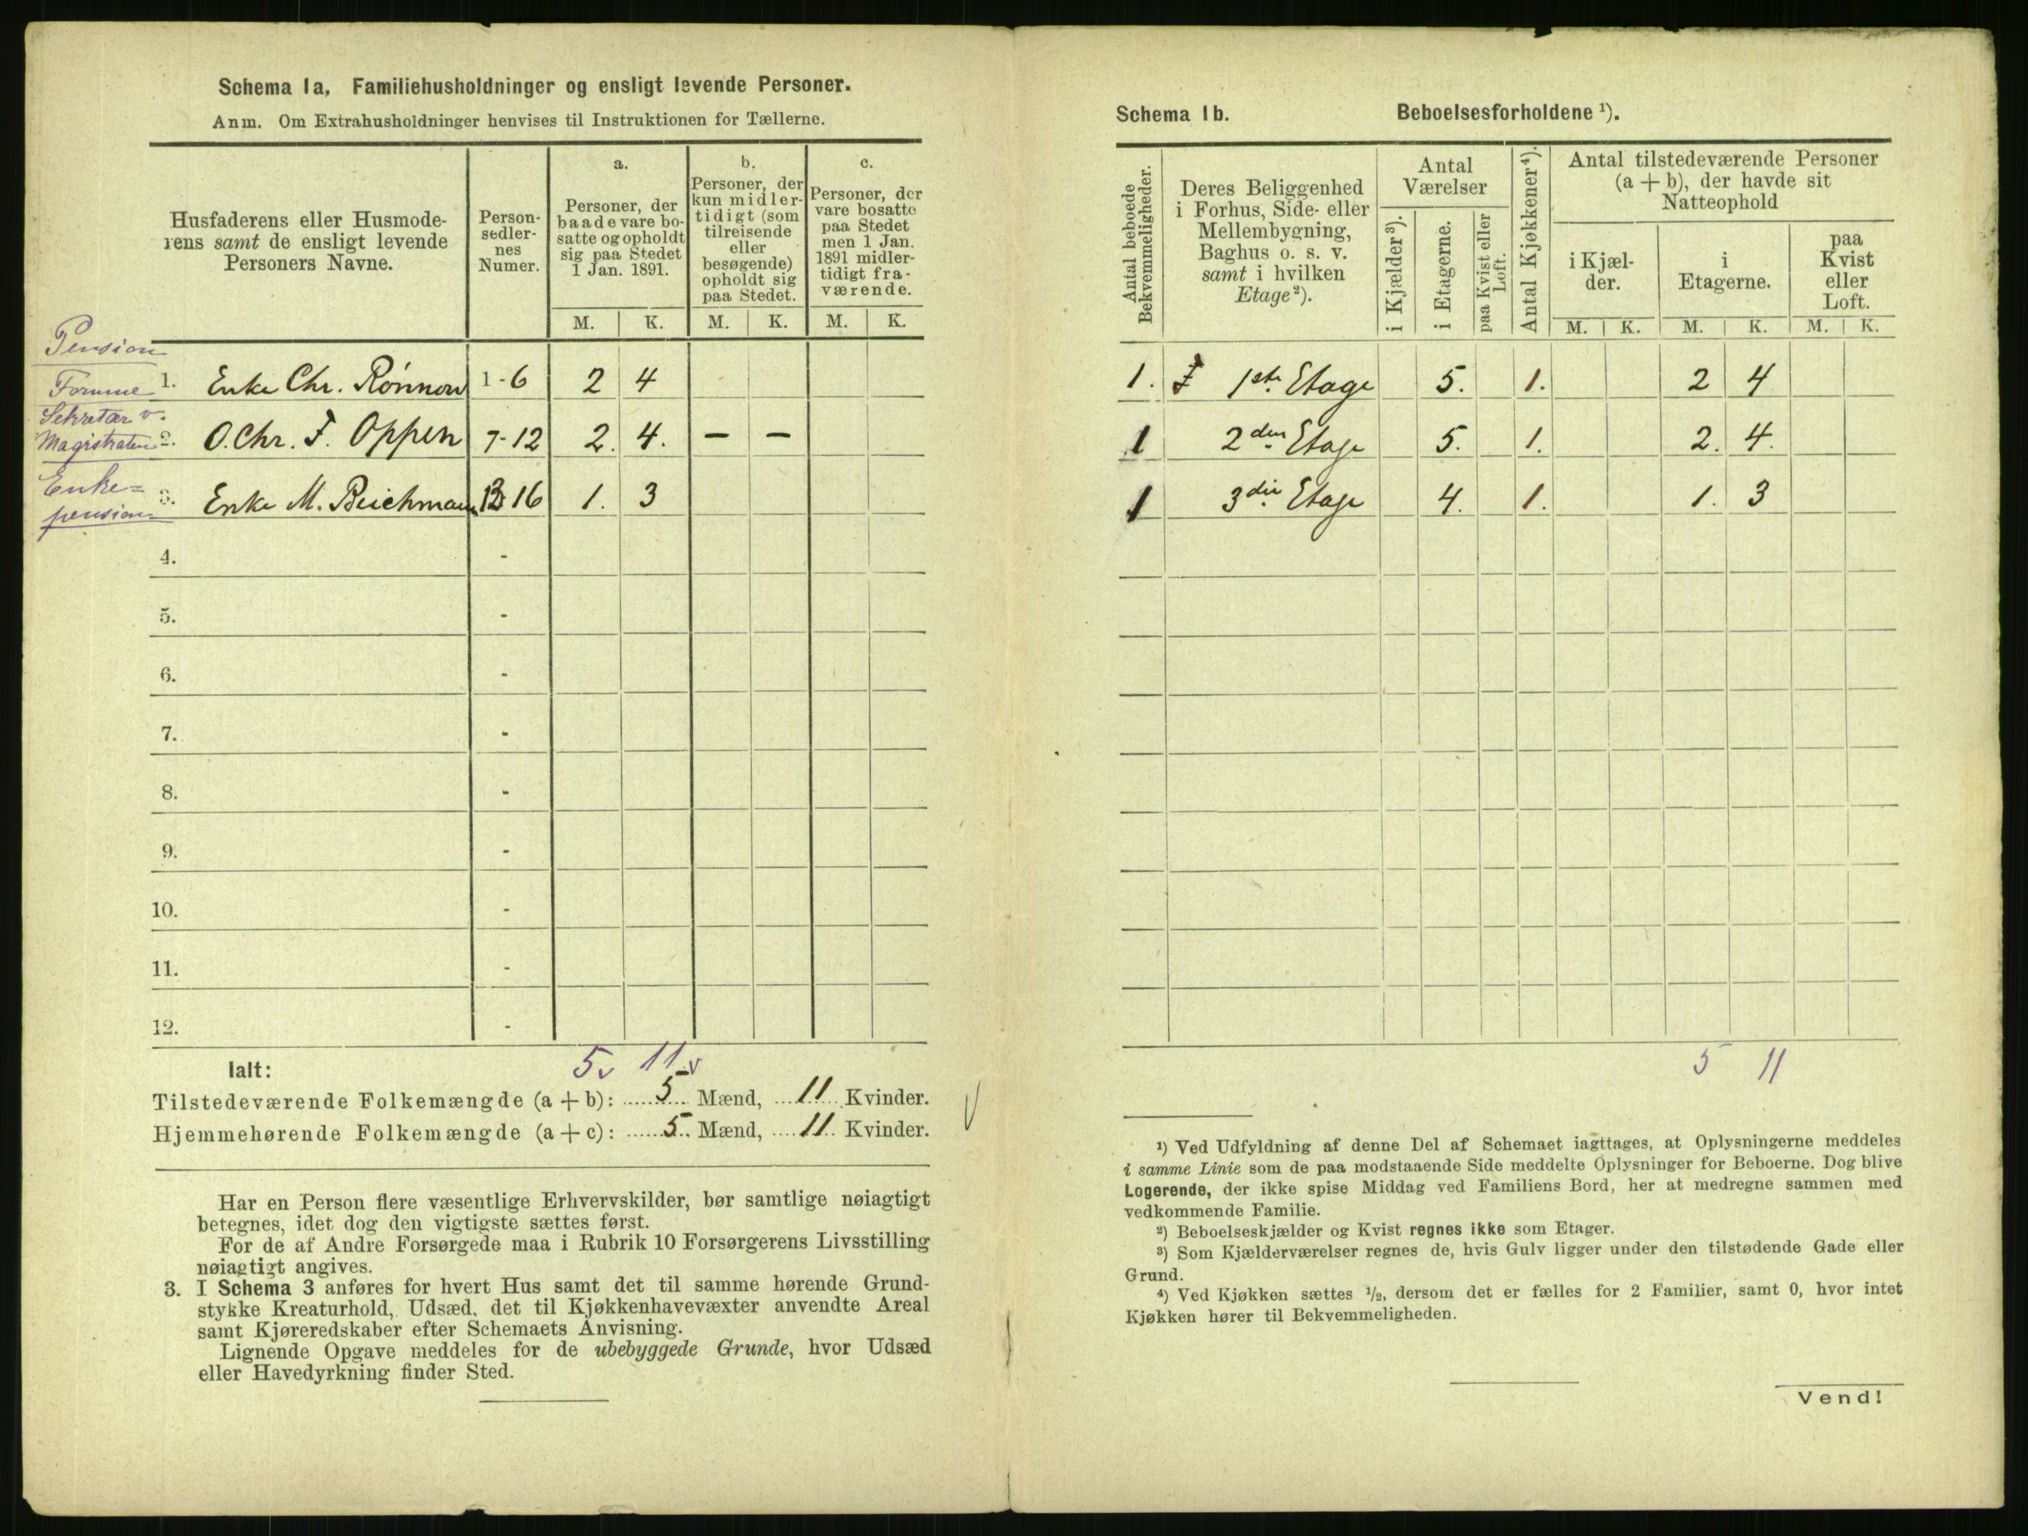 Schema 1a, Familiehusholdninger og ensligt levende Personer.
Anm. Om Extrahusholdninger henvises til Instruktionen for Tællerne.
Husfaderens eller Husmode-
rens samt de ensligt levende
Personers Navne.
Person-
sedler-
nes
Numer.
a.
Personer, der
baade vare bo-
satte og opholdt
sig paa Stedet
1 Jan. 1891.
b.
Personer, der
kun midler-
tidigt (som
tilreisende
eller
besøgende)
opholdt sig
paa Stedet.
c.
Personer, der
vare bosatte
paa Stedet
men 1 Jan.
1891 midler-
tidigt fra-
værende.
M. K. M. K. M. K.
Pension
Formue 1. Enke Chr. Rönnow 1-6 2 4
Sekretær v.
Magistraten 2. O. Chr. F. Oppen 7-12 2. 4. — —
Enke=
pension 3. Enke M. Beichmann 13 16 1. 3
4. -
5. -
6. -
7. -
8. -
9. -
10. -
11. -
12. -
5 v 11 v
Ialt:
Tilstedeværende Folkemængde (a + b): 5 Mænd, 11 Kvinder.
Hjemmehørende Folkemængde (a + c): 5 Mænd, 11 Kvinder.
Har en Person flere væsentlige Erhvervskilder, bør samtlige nøiagtigt
betegnes, idet dog den vigtigste sættes først.
For de af Andre Forsørgede maa i Rubrik 10 Forsørgerens Livsstilling
nøiagtigt angives.
3. I Schema 3 anføres for hvert Hus samt det til samme hørende Grund-
stykke Kreaturhold, Udsæd, det til Kjøkkenhavevæxter anvendte Areal
samt Kjøreredskaber efter Schemaets Anvisning.
Lignende Opgave meddeles for de ubebyggede Grunde, hvor Udsæd
eller Havedyrkning finder Sted.
Schema 1b. Beboelsesforholdene ¹).
Antal beboede
Bekvemmeligheder.
Deres Beliggenhed
i Forhus, Side- eller
Mellembygning,
Baghus o. s. v.
samt i hvilken
Etage²).
Antal
Værelser
i Kjælder³).
i Etagerne.
paa Kvist eller
Loft.
Antal Kjøkkener⁴).
Antal tilstedeværende Personer
(a + b), der havde sit
Natteophold
i Kjæl-
der.
i
Etagerne.
paa
Kvist
eller
Loft.
M. K. M. K. M. K.
1. F 1ste Etage 5. 1. 2 4
1 2den Etage 5. 1. 2. 4.
1 3die Etage 4. 1. 1. 3
5 11
¹) Ved Udfyldning af denne Del af Schemaet iagttages, at Oplysningerne meddeles
i samme Linie som de paa modstaaende Side meddelte Oplysninger for Beboerne. Dog blive
Logerende, der ikke spise Middag ved Familiens Bord, her at medregne sammen med
vedkommende Familie.
²) Beboelseskjælder og Kvist regnes ikke som Etager.
³) Som Kjælderværelser regnes de, hvis Gulv ligger under den tilstødende Gade eller
Grund.
⁴) Ved Kjøkken sættes ¹/₂, dersom det er fælles for 2 Familier, samt 0, hvor intet
Kjøkken hører til Bekvemmeligheden.
Vend!